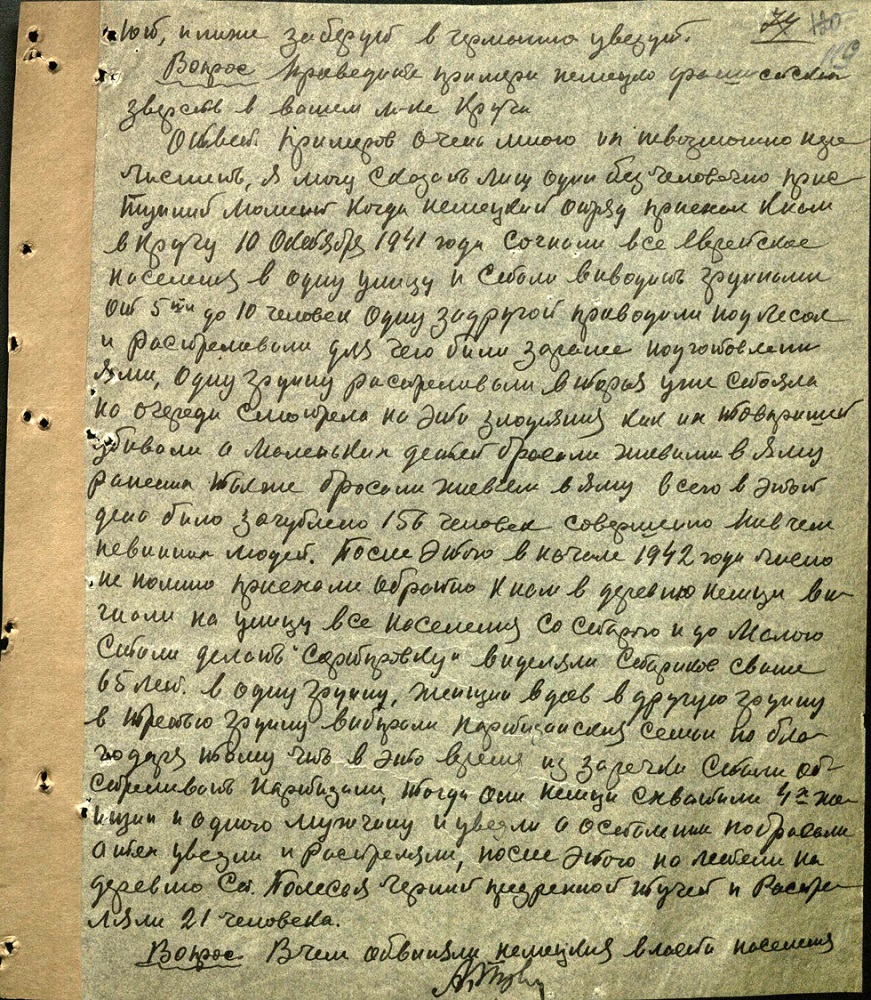 74 120
119
ют, и ниже заберут в германию увезут.
Вопрос Приведите примеры немецко фашистских
зверств в вашем м-ке Круча
Ответ. Примеров очень много их невозможно пере
числить, я могу сказать лишь один без человечно прис
тупний момент когда немецкий отряд приехал к нам
в Кручу 10 Октября 1941 года Согнали все Еврейское
населения в одну улицу и стали выводить группами
от 5ти до 10 человек одну за другой приводили под лесом
и Расстреливали для чего были заранее подготовлены
ями, одну группу расстреливали вторая уже стояла
на очереди смотрела на эти злодеяния как их товарищей
убивали а маленьких детей бросали живыми в яму
ранених также бросали живьем в яму всего в этот
день било загублено 156 человек совершенно ни в чем
невинних людей. После этого в начале 1942 года число
не помню приехали обратно к нам в деревню немци ви
гнали на улицу все населения со старого и до малого
стали делать "сортировку" виделяли стариков свыше
65 лет. в одну группу, женщин вдов в другую группу
в третью группу вибирали партизанския семьи но бла
годаря тому что в это время из заречки стали об-
стреливать партизани, тогда они немци схватили 4х же
нщин и одного мужчину и увезли а осталних побросали
а тех увезли и расстреляли, после этого налетели на
деревню Ст. Полесья черний тучей и Расстре
ляли 21 человека.
Вопрос В чем обвиняли немецкия власти населения